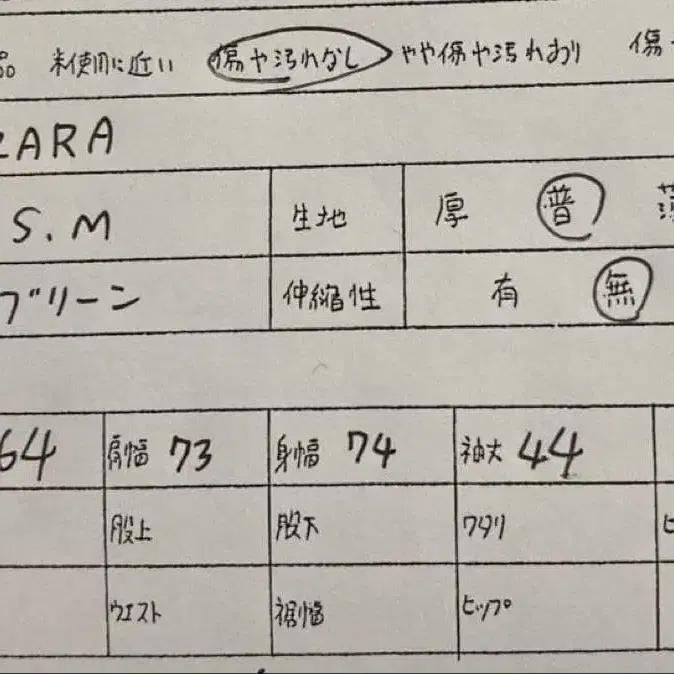 品 未使用に近い 傷や汚れなし やや傷や汚れあり 傷
ZARA
S.M 生地 厚 普 薄
グリーン 伸縮性 有 無
64 肩幅 73 身幅 74 袖丈 44
股上 股下 ワタリ
ウエスト 裾幅 ヒップ